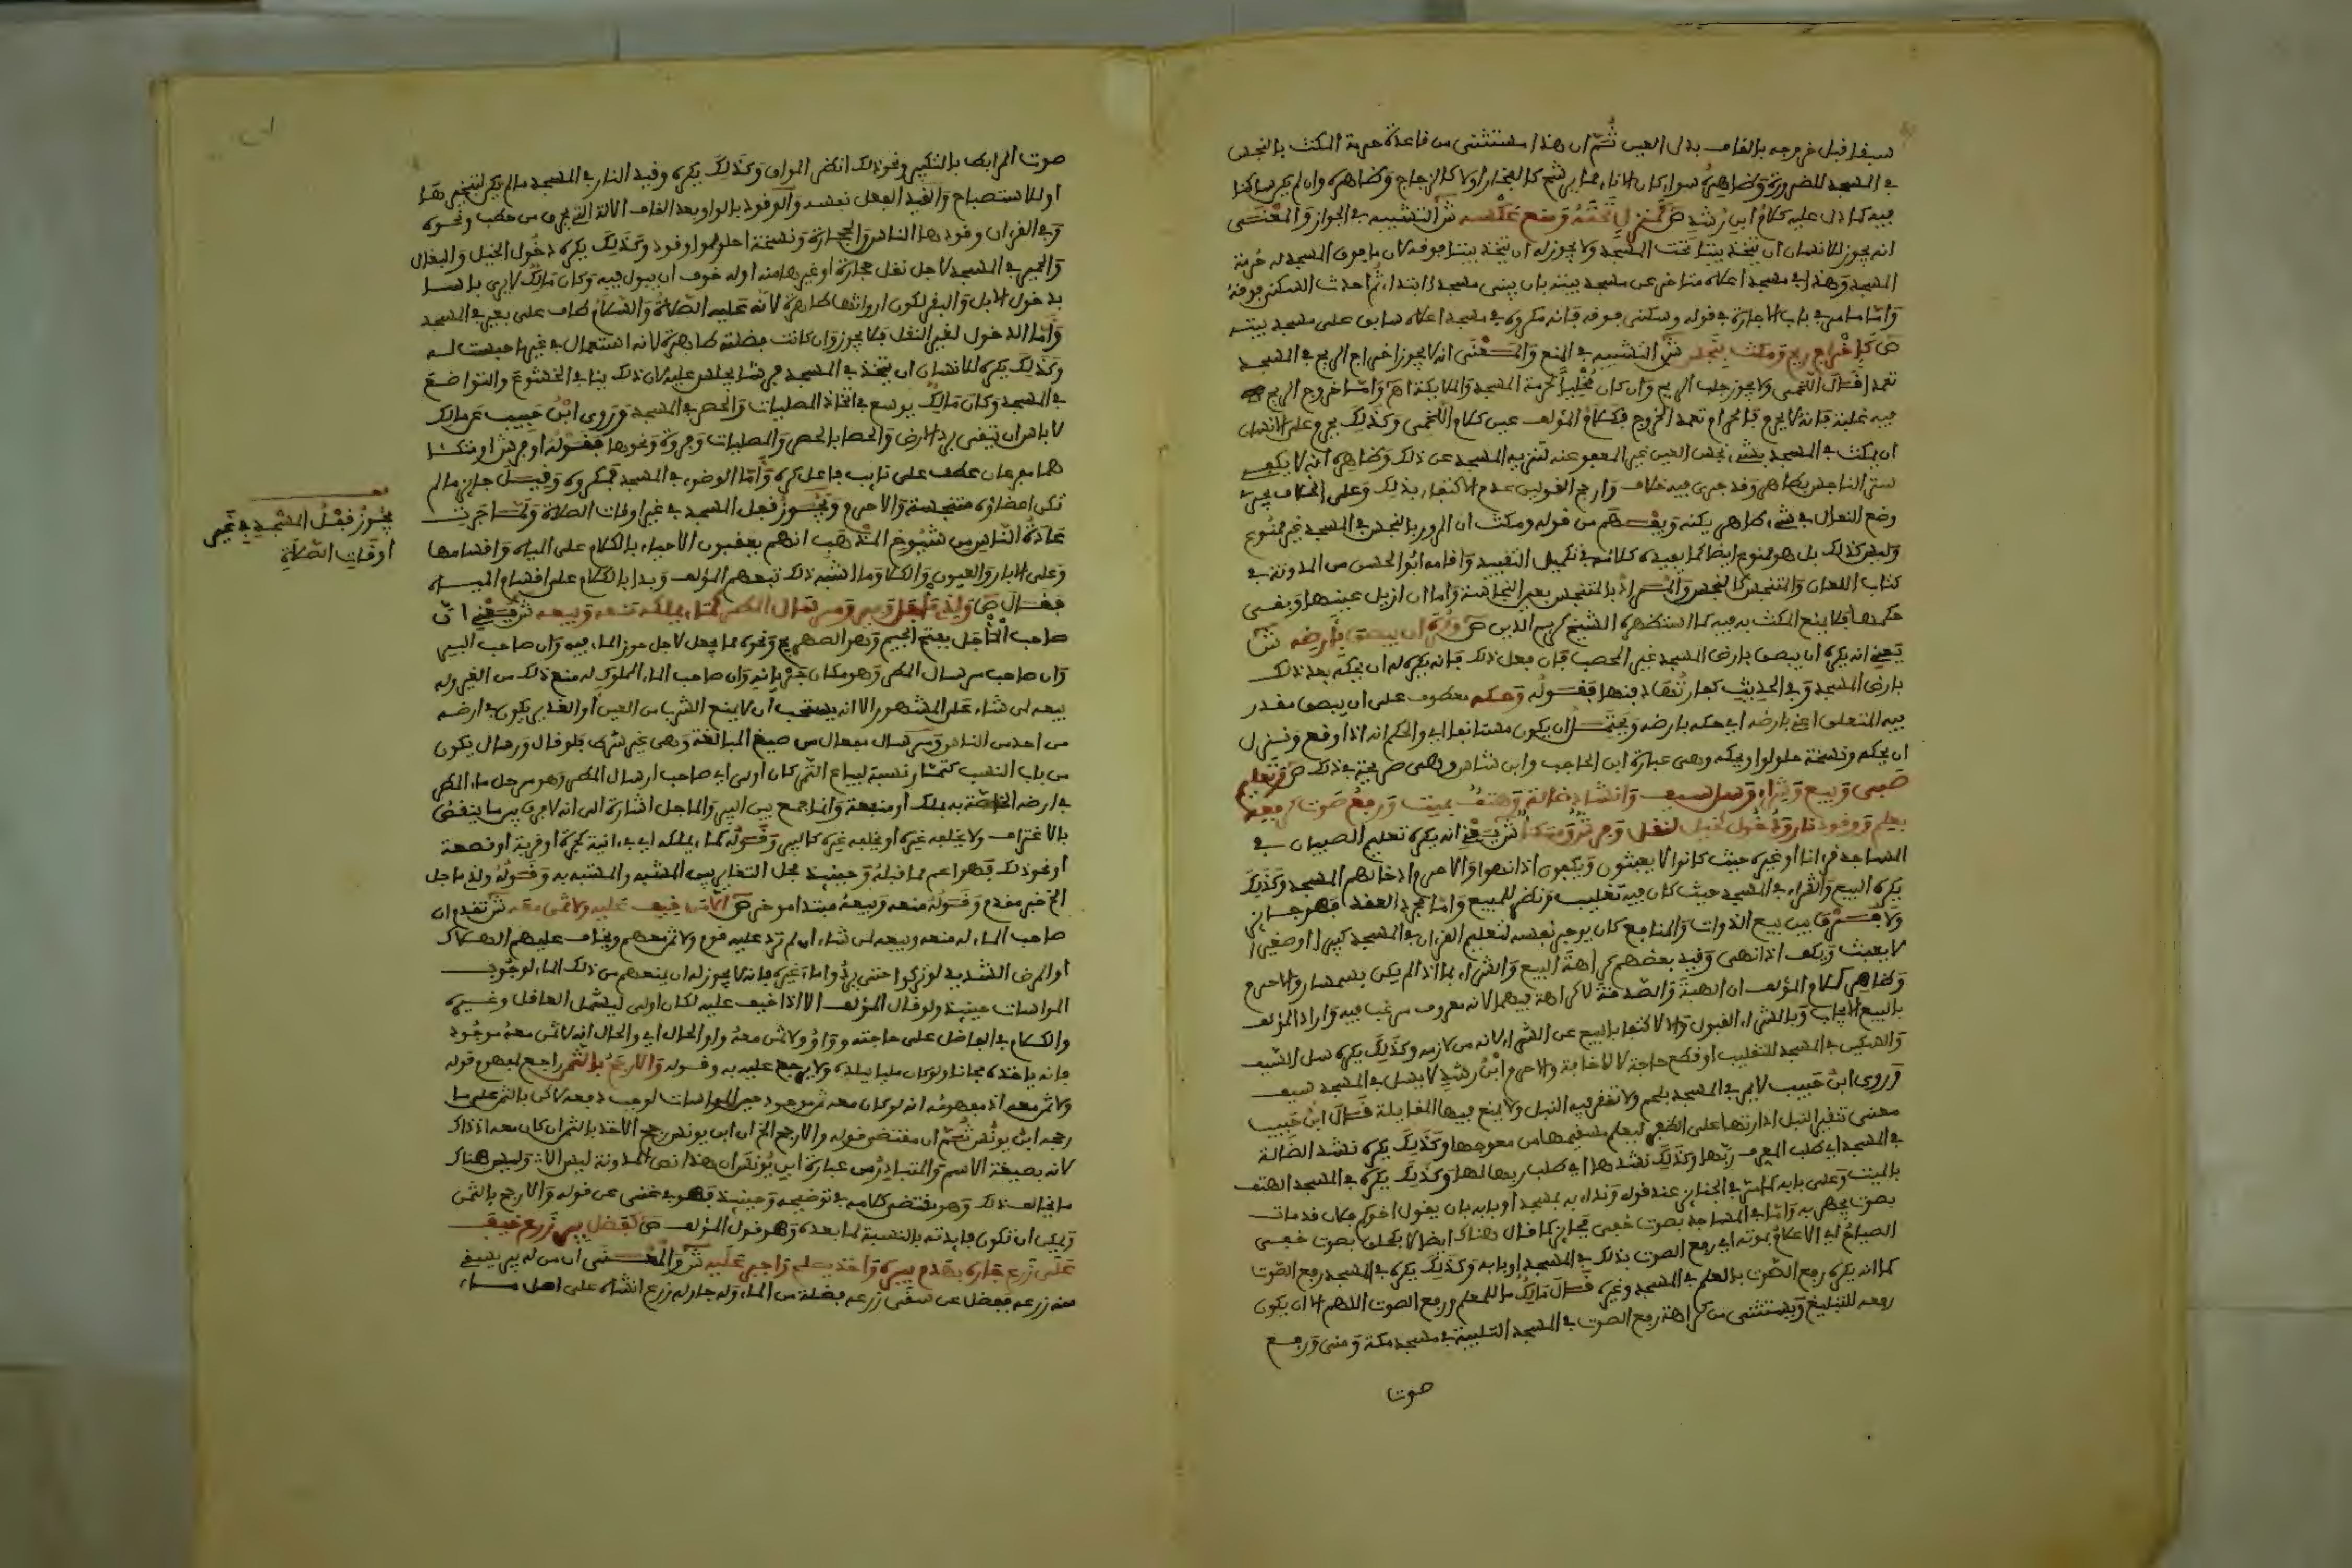 سبغا قبل خروجه بالقاف بدل العين ثم ان هذا مستثنى من قاعدة حرمة المكث بالنجس
في المسجد للضرورة وظاهره سواء كان الاناء مما يرشح كالفخار اولا كالزجاج وظاهره وان لم يكن ساكنا
فيه كما دل عليه كلام ابن رشد ص كمنزل تحته ومنع عكسه ش التشبيه في الجواز والمعنى
انه يجوز للانسان ان يتخذ بيتا تحت المسجد ولا يجوز له ان يتخذ بيتا فوقه لان ما فوق المسجد له حرمة
المسجد وهذا في مسجد اعلاه متاخر عن مسجد بيته بان يبنى مسجد ابتداء ثم احدث السكنى فوقه
واما ما مر في باب الاجارة في قوله وسكنى فوقه فانه مكروه في مسجد اعلاه سابق على مسجد بيته
ص كاخراج ريح ومكث بنجس ش التشبيه في المنع والمعنى انه لا يجوز اخراج الريح في المسجد
تعمد اقال اللخمي ولا يجوز جلب الريح وان كان مخليا لحرمة المسجد والملايكة اهم واما خروج الريح
فيه غلبة فانه لا يحرم فالمحرم تعمد الخروج فكلام المؤلف عين كلام اللخمي وكذلك يحرم على الانسان
ان يمكث في المسجد بشيء نجس العين غير المعفو عنه لتنزيه المسجد عن ذلك وظاهره انه لا يكفي
ستر الناجس بطاهر وقد جرى فيه خلاف وارجح القولين عدم الاكتفاء بذلك وعلى الخلاف يجري
وضع النعال في شيء طاهر يكنه ويفهم من قوله ومكث ان المرور بالنجس في المسجد غير ممنوع
وليس كذلك بل هو ممنوع ايضا كما يفيده كلامه في تكميل التقييد واقامه ابو الحسن من المدونة في
كتاب اللعان والمتنجس كالنجس والمراد بالمتنجس بعين النجاسة واما ان ازيل عينها وبقي
حكمها فلا يمنع المكث به فيه كما استظهره الشيخ كريم الدين ص وكره ان يبصق بارضه ش
يعني انه يكره ان يبصق بارض المسجد غير المحصب فان فعل ذلك فانه يكره له ان يحكه بعد ذلك
بارض المسجد وفي الحديث كفارتها دفنها فقوله وحكه معطوف على ان يبصق مقدر
فيه المتعلق اعني بارضه اي حكه بارضه ويحتمل ان يكون مستانفا اي والحكم انه اذا وقع ونزل
ان يحكه ونسخة حلولوا ويحكه وهي عبارة ابن الحاجب وابن شاس وهي صريحة في ذلك ص وتعليم
صبي وبيع وشراء وسل سيف وانشاد ضالة وهتف بميت ورفع صوت كرفعه
بعلم ووقود نار ودخول كخيل لنقل وفرش ومتكا ش يعني انه يكره تعليم الصبيان في
المساجد قرءانا او غيره حيث كانوا لا يعبثون ويكفون اذا نهوا والا حرم ادخالهم المسجد وكذلك
يكره البيع والشراء في المسجد حيث كان فيه تقليب ونظر للمبيع واما مجرد العقد فهو جائز
ولا فرق بين بيع الذوات والمنافع كان يوجر نفسه لتعليم القرءان في المسجد كبيرا او صغيرا
لا يعبث ويكف اذا نهي وقيد بعضهم كراهة البيع والشراء بما اذا لم يكن بسمسار والا حرم
وظاهر كلام المؤلف ان الهبة والصدقة لا كراهة فيهما لانه معروف مرغب فيه واراد المؤلف
بالبيع الايجاب وبالشراء القبول والا لاكتفى بالبيع عن الشراء لانه من لازمه وكذلك يكره سل السيف
والسكين في المسجد للتقليب او قطع حاجة لا لاخافة والا حرم ابن رشد لا يسل في المسجد سيف
وروى ابن حبيب لا يمر في المسجد بلحم ولا تنفر فيه النبل ولا يمنع فيها القايلة قال ابن حبيب
معنى تنفير النبل ادارتها على الظفر ليعلم مستقيمها من معوجها وكذلك يكره نشد الضالة
في المسجد اي طلب المعرف ربها وكذلك نشدها اي طلب ربها لها وكذلك يكره في المسجد الهتف
بالميت وعلى بابه كما مر في الجنائز عند قوله ونداء به بمسجد او بابه بان يقول اخوكم فلان قد مات
بصوت يجهر به واما في المساجد بصوت خفي فجائز كما قال هناك ايضا لا بكحلق بصوت خفي
الصياح اي الاعلام بموته اي رفع الصوت بذلك في المسجد او بابه وكذلك يكره في المسجد رفع الصوت
كما انه يكره رفع الصوت بالعلم في المسجد وغيره قال مالك ما للعلم ورفع الصوت اللهم الا ان يكون
رفعه للتبليغ ويستثنى من كراهة رفع الصوت في المسجد التلبية في مسجد مكة ومنى ورفع
صوت
صوت المرابط بالتكبير ونحو ذلك انظر المواق وكذلك يكره وقيد النار في المسجد ما لم يكن لتبخيرها
او للاستصباح والقيد الفعل نفسه والوقود بالواو بعد القاف الالة التي تحرق من حطب ونحوه
وفي القرءان وقودها الناس والحجارة ونسخة حلولوا وقود وكذلك يكره دخول الخيل والبغال
والحمير في المسجد لاجل نقل حجارة او غيرها منه او له خوف ان يبول فيه وكان مالك لا يرى باسا
بدخول الابل والبقر لكون ارواثها طاهرة لانه عليه الصلاة والسلام طاف على بعير في المسجد
واما الدخول لغير النقل فلا يجوز وان كانت فضلته طاهرة لانه استعمال في غير ما حبست له
وكذلك يكره للانسان ان يتخذ في المسجد فرشا يجلس عليه لان ذلك ينافي الخشوع والتواضع
في المسجد وكان مالك يوسع في اتخاذ المصليات والحصر في المسجد وروى ابن حبيب عن مالك
لا باس ان يتقى برد الارض والحصا بالحصر والمصليات وفروة ونحوها فقوله او فرش او متكا
هما مرفوعان عطف على نايب فاعل كره واما الوضوء في المسجد فمكروه وقيل جايز ما لم
تكن اعضاؤه متنجسة والا حرم ويجوز قفل المسجد في غير اوقات الصلاة ولما جرت
عادة الناس من شيوخ المذهب انهم يعقبون الاحياء بالكلام على المياه واقسامها
وعلى الابار والعيون والكلا وما اشبه ذلك تبعهم المؤلف وبدا بالكلام على اقسام المياه
فقال ص ولذي ماجل وبير ومرسال المطر كماء يملكه منعه وبيعه ش يعني ان
صاحب الماجل بفتح الجيم وهو الصهريج ونحوه مما يجعل لاجل حوز الماء فيه وان صاحب البير
وان صاحب مرسال المطر وهو مكان جريانه وان صاحب الماء المملوك له منع ذلك من الغير وله
بيعه لمن شاء على المشهور الا انه يستحب ان لا يمنع الشرب من العين او الغدير يكون في ارضه
من احد من الناس ومرسال مفعال من صيغ المبالغة وهي غير شرط فلو قال ورسال يكون
من باب النسب كتمار نسبة لبياع التمر كان اولى اي صاحب ارسال المطر وهو من حل ماء المطر
في ارضه الخاصة به بملك او منفعة وانما جمع بين البير والماجل اشارة الى انه لا فرق بين ما ينقص
بالاغتراف ولا يخلفه غيره او يخلفه غيره كالبير وقوله كماء يملكه اي في انية كجرة او قربة او قصعة
او نحو ذلك فهو اعم مما قبله وحينئذ يحل التغاير بين المشبه والمشبه به وقوله ولذي ماجل
الخ خبر مقدم وقوله منعه وبيعه مبتدا موخر ص الا من خيف عليه ولا ثمن معه ش تقدم ان
صاحب الماء له منعه وبيعه لمن شاء ان لم ترد عليه قوم ولا ثمن معهم ويخاف عليهم الهلاك
او المرض الشديد لو تركوا حتى يردوا ماء غيره فانه لا يجوز له ان يمنعهم من ذلك الماء لوجوب
المواسات حينئذ ولو قال المؤلف الا اذا خيف عليه لكان اولى ليشمل العاقل وغيره
والكلام في الفاضل على حاجته وواو ولا ثمن معه واو الحال اي والحال انه لا ثمن معه موجود
فانه ياخذه مجانا ولو كان مليا ببلده ولا يرجع عليه به وقوله والارجح بالثمن راجع لمفهوم قوله
ولا ثمن معه اذ مفهومه انه لو كان معه ثمن موجود حين المواسات لوجب دفعه لاكن بالثمن على ما
رجحه ابن يونس ثم ان مقتضى قوله والارجح الخ ان ابن يونس رجح الاخذ بالثمن ان كان معه اذ ذاك
لانه بصيغة الاسم والمتبادر من عبارة ابن يونس ان هذا نص المدونة ليس الا وليس هناك
ما يخالف ذلك وهو مقتضى كلامه في توضيحه وحينئذ فهو في غنى عن قوله والارجح بالثمن
ويمكن ان تكون فايدته بالنسبة لما بعده وهو قول المؤلف ص كفضل بير زرع خيف
على زرع جاره بهدم بيره واخذ يصلح واجبر عليه ش والمعنى ان من له بير يسقي
منه زرعه ففضل عن سقي زرعه فضلة من الماء وله جار له زرع انشاه على اصل ماء
يجوز قفل المسجد في غير
اوقات الصلاة